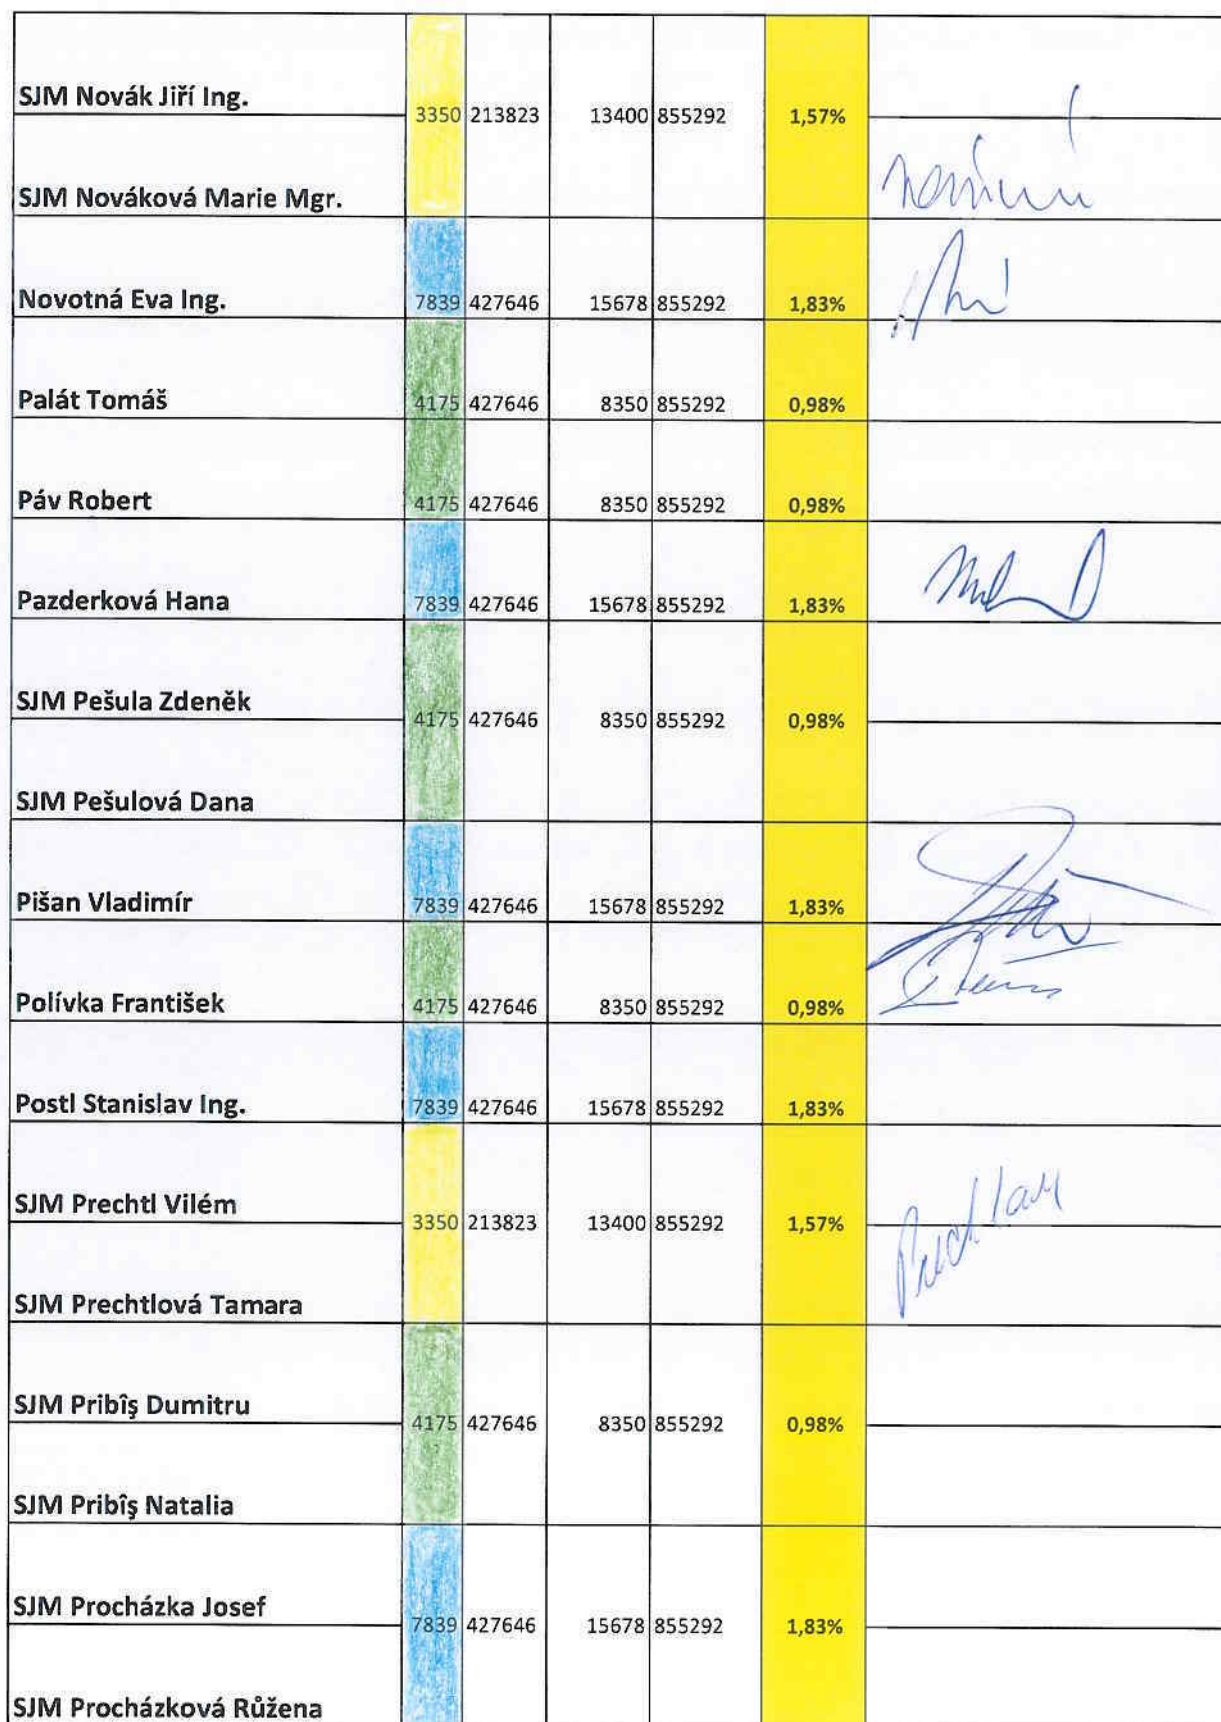 SJM Novák Jiří Ing.
3350 213823 13400 855292 1,57%
SJM Nováková Marie Mgr.
Novotná Eva Ing. 7839 427646 15678 855292 1,83%
Palát Tomáš 4175 427646 8350 855292 0,98%
Páv Robert 4175 427646 8350 855292 0,98%
Pazderková Hana 7839 427646 15678 855292 1,83%
SJM Pešula Zdeněk
4175 427646 8350 855292 0,98%
SJM Pešulová Dana
Pišan Vladimír 7839 427646 15678 855292 1,83%
Polívka František 4175 427646 8350 855292 0,98%
Postl Stanislav Ing. 7839 427646 15678 855292 1,83%
SJM Prechtl Vilém
3350 213823 13400 855292 1,57%
SJM Prechtlová Tamara
SJM Pribîş Dumitru
4175 427646 8350 855292 0,98%
SJM Pribîş Natalia
SJM Procházka Josef
7839 427646 15678 855292 1,83%
SJM Procházková Růžena